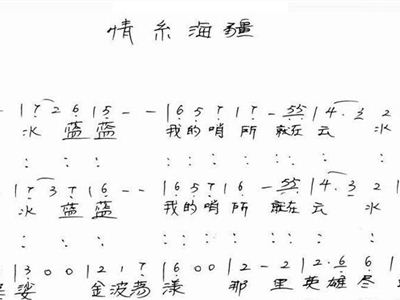 情系海疆
- | 7 2 6 | 5 - - | 6 5 7 | 7 - 55 | 4. 3 2
水 蓝蓝 我的哨所 就在云 水
: : : : : : : : : : : :
| 7 3 7 | 6 - - | 6 5 7 | 6 - 55 | 4. 3 2 |
水 蓝蓝 我的哨所 就在云 水
: : : : : : : : : : : :
| 3 0 0 | 2 1 7 | 6 0 0 | 2 - 2 | 2. 6 6 |
婆 金波荡漾 那里英雄尽